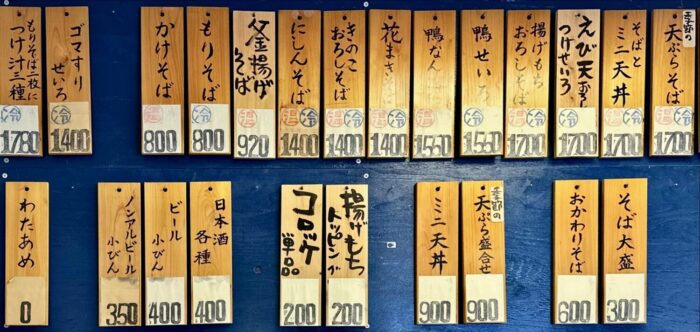 季節の
天ぷらそば
温 冷
1700
そばと
ミニ天丼
温 冷
1700
えび天おろし
つけせいろ
冷
1700
揚げもち
おろしそば
温 冷
1700
鴨せいろ
冷
1550
鴨なん
温
1550
花まき
温
1400
きのこ
おろしそば
温 冷
1400
にしんそば
温 冷
1400
釜揚げ
そば
温
920
もりそば
冷
800
かけそば
温
800
ゴマすり
せいろ
冷
1400
もりそば二枚に
つけ汁三種
冷
1780
そば大盛
300
おかわりそば
600
季節の
天ぷら盛合せ
900
ミニ天丼
900
揚げもち
トッピング
200
コロッケ
単品
200
日本酒
各種
400
ビール
小びん
400
ノンアルビール
小びん
350
わたあめ
0